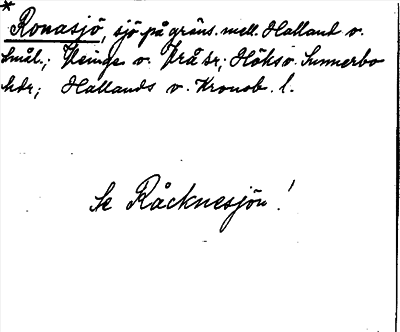 *
Ronasjö, sjö på gräns. mell. Halland o.
Smål.; Veinge o. Trå sr; Höks o. Sunnerbo
hdr; Hallands o. Kronob. l.
Se Råcknesjön!